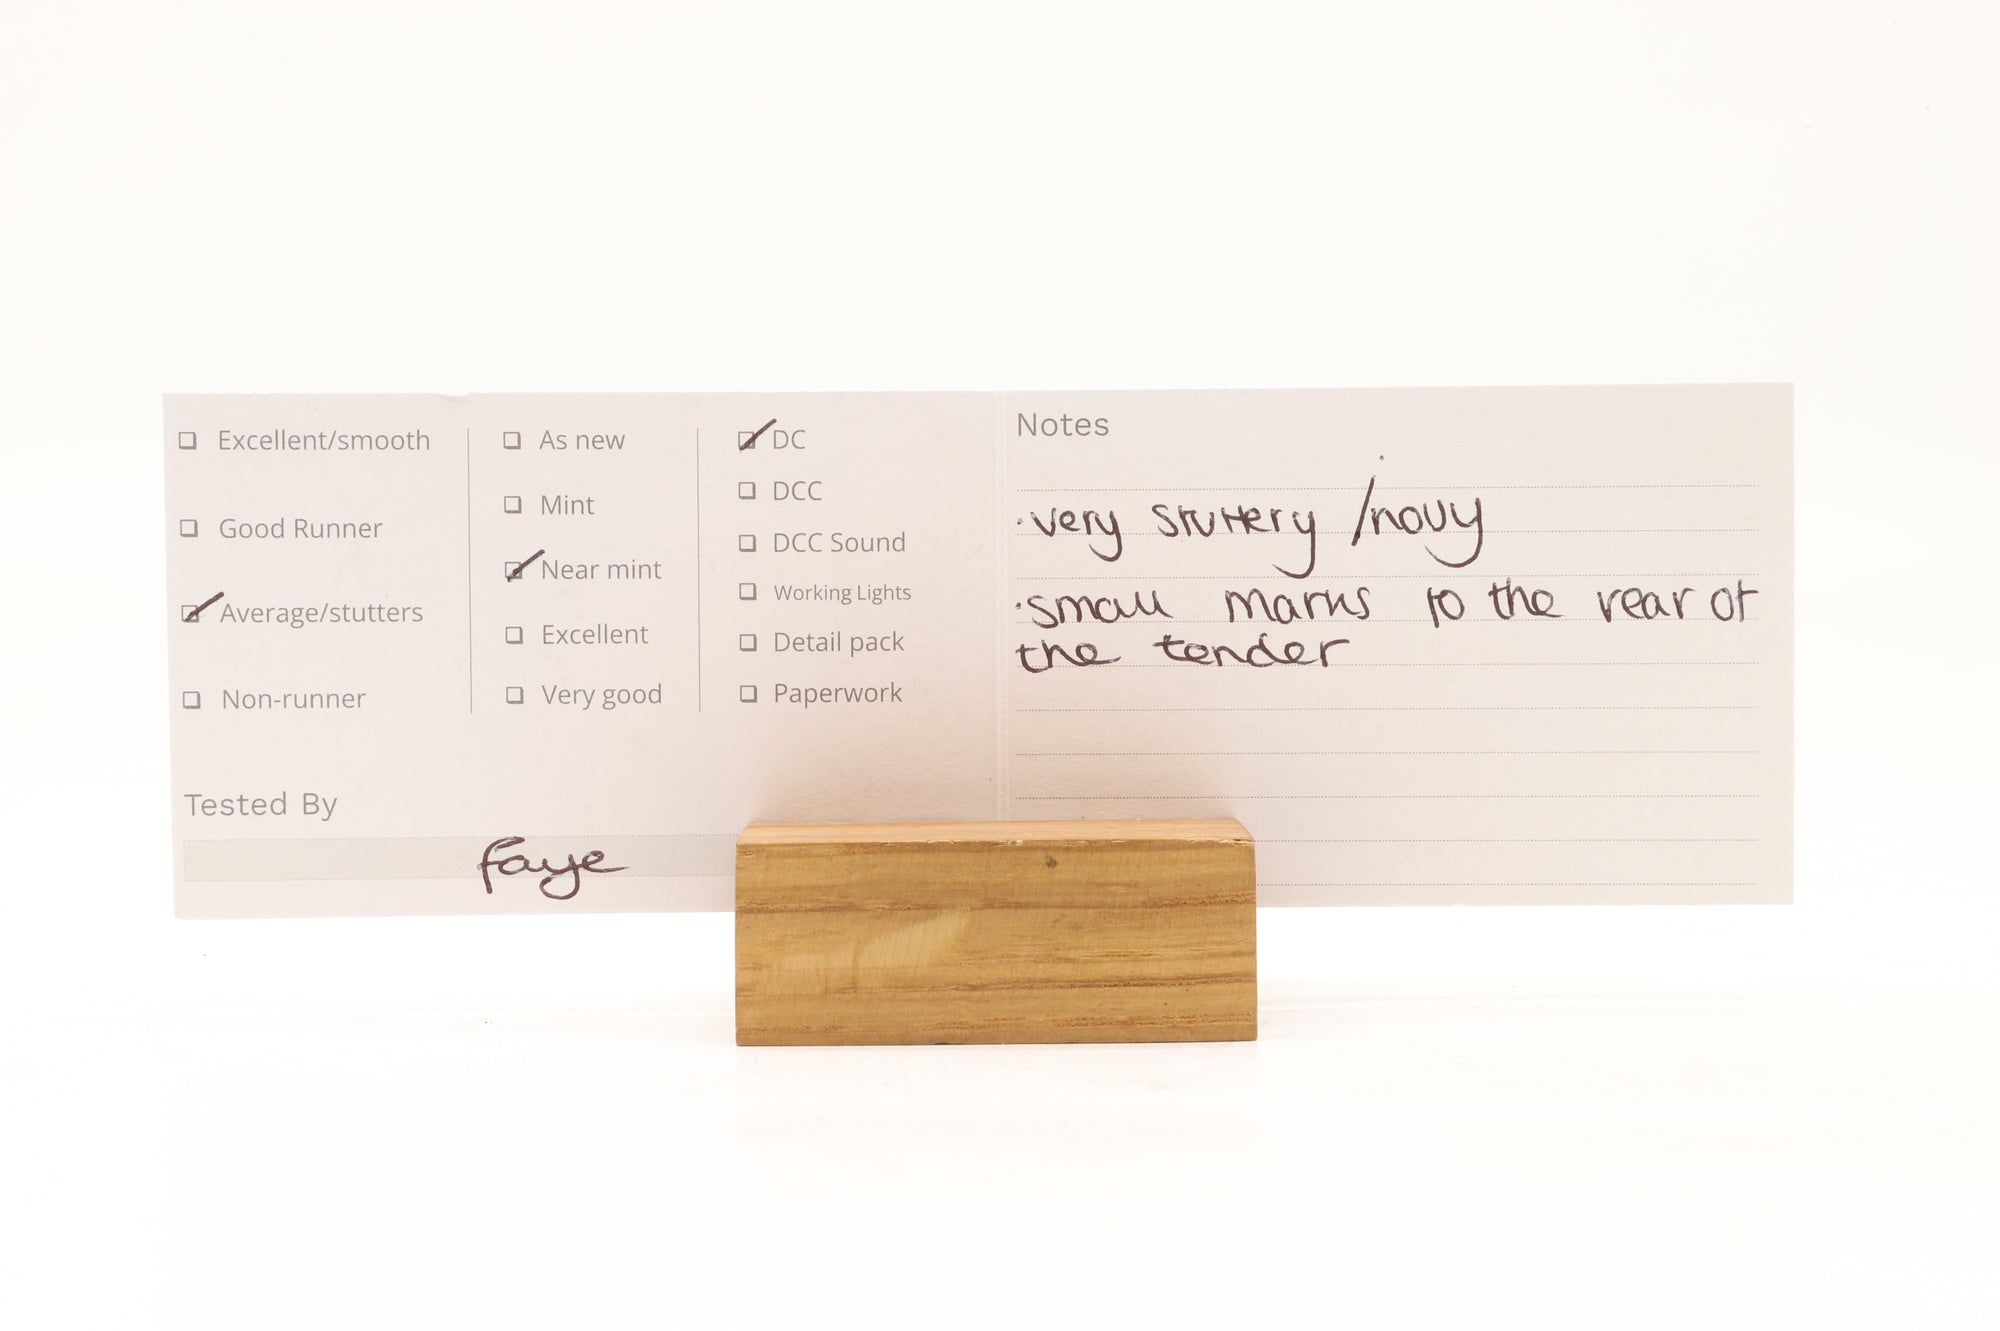 Excellent/smooth
Good Runner
Average/stutters
Non-runner
As new
Mint
Near mint
Excellent
Very good
DC
DCC
DCC Sound
Working Lights
Detail pack
Paperwork
Tested By
faye
Notes
·very stuttery /
·small marks to the rear of
the tender